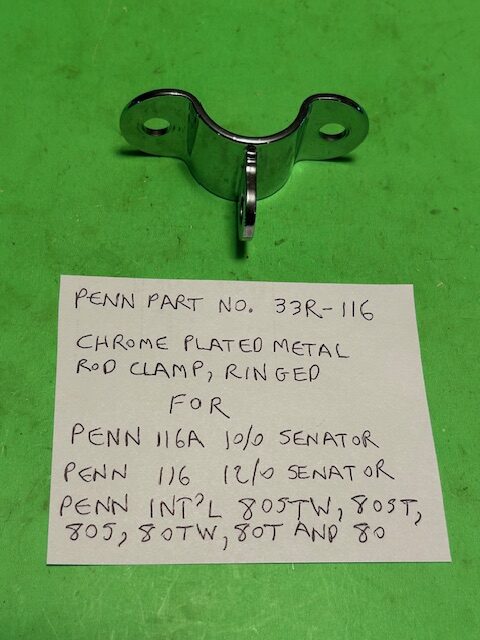 PENN PART NO. 33R-116
CHROME PLATED METAL
ROD CLAMP, RINGED
FOR
PENN 116A 10/0 SENATOR
PENN 116 12/0 SENATOR
PENN INT'L 805TW, 805T,
805, 80TW, 80T AND 80